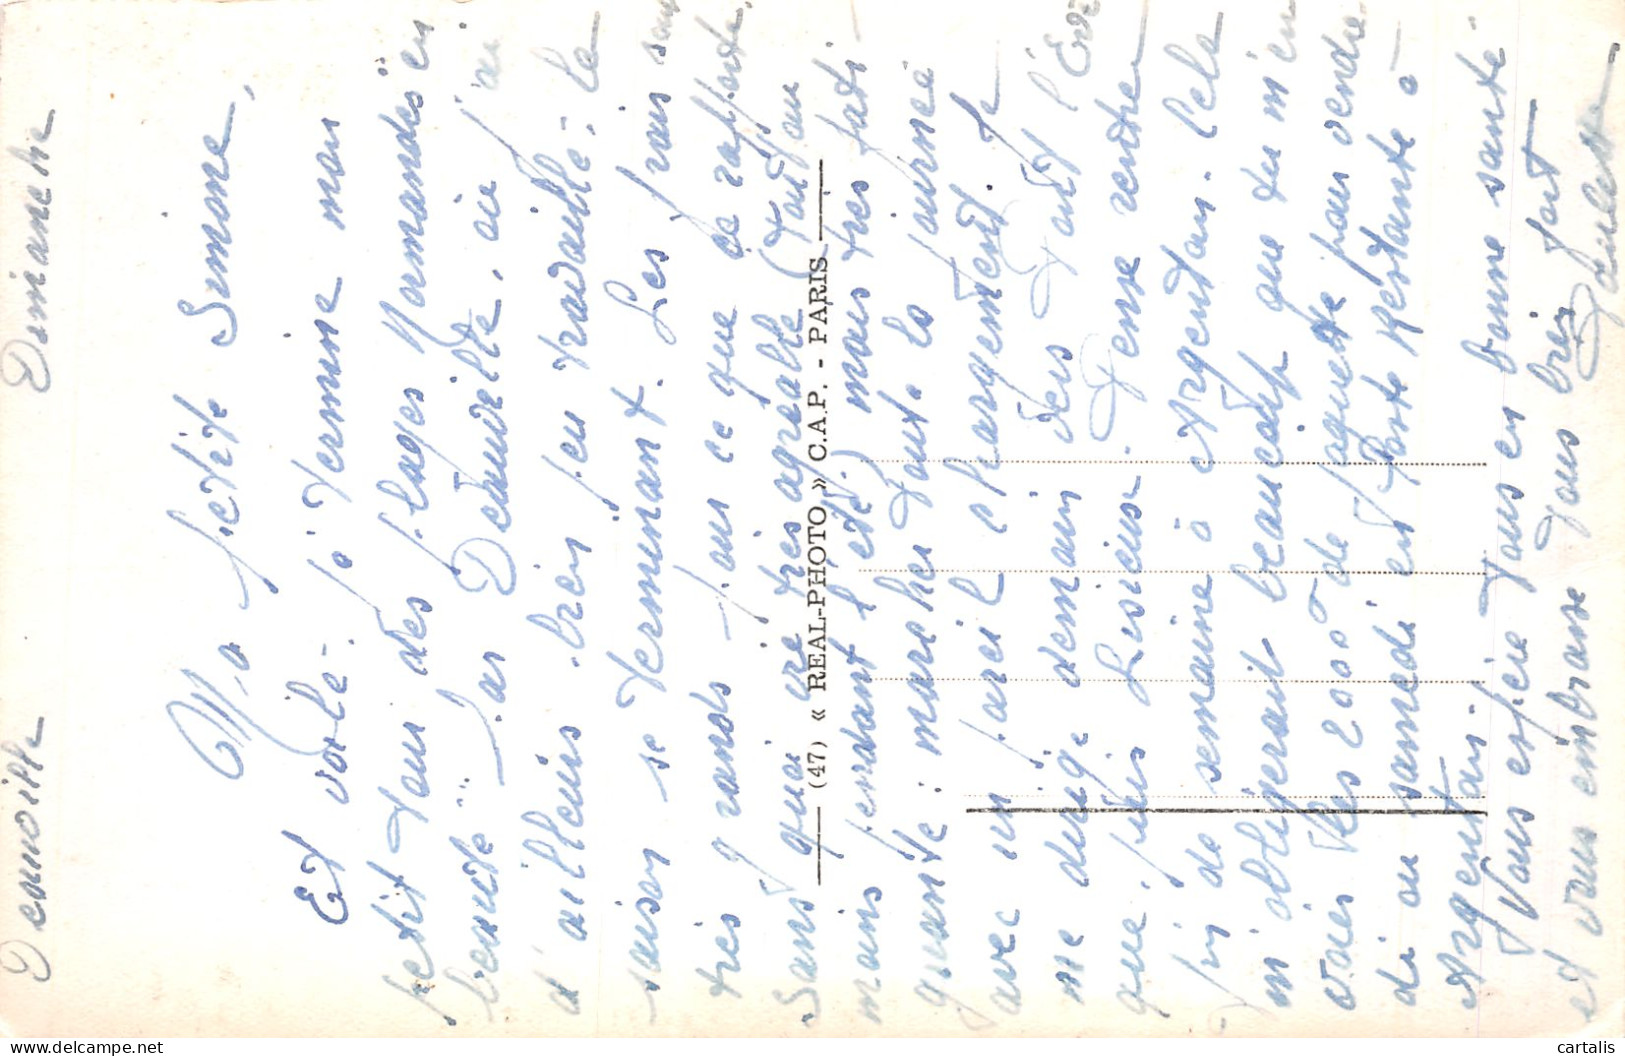 Deauville Dimanche
Ma petite Simone,
Et voilà. J'ai terminé mon
petit tour des plages Normandes en
beauté par Deauville, où j'ai
d'ailleurs bien peu travaillé. La
saison se terminant. Les frais sont
très grands pour ce que ça rapporte,
Sans quoi vie très agréable (surtout
pendant l'été) mais très fati-
quante : marcher toute la journée
avec un pareil chargement. Je
me dirige demain vers
que puis Lisieux. Pense rentrer
fin de semaine à Argentan. Cela
m'obligerait beaucoup que tu m'en-
voies les 2000 de paquette pour vendre-
di ou samedi en Poste Restante à
Argentan.
Vous espère tous en bonne santé
et vous embrasse tous bien fort
Paulette
(47) « REAL-PHOTO » C.A.P. - PARIS
cartalis